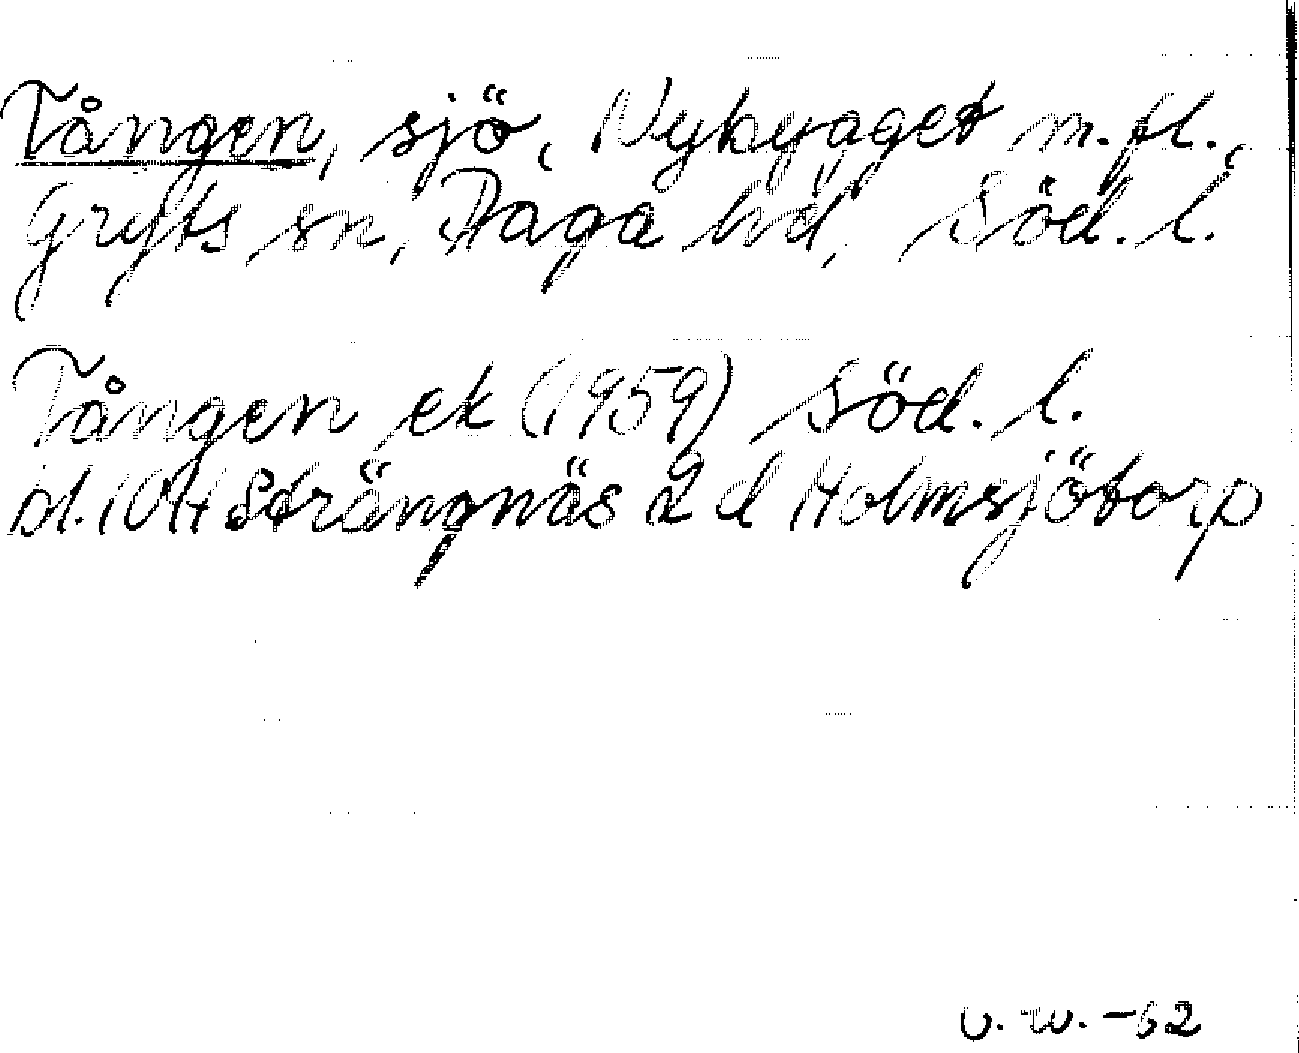 Tången, sjö, Nybygget m.fl.,
Gryts sn, Daga hd, Söd. l.
Tången ek (1959) Söd. l.
bl. 10H Strängnäs 2 d Holmsjötorp
U. W. -62